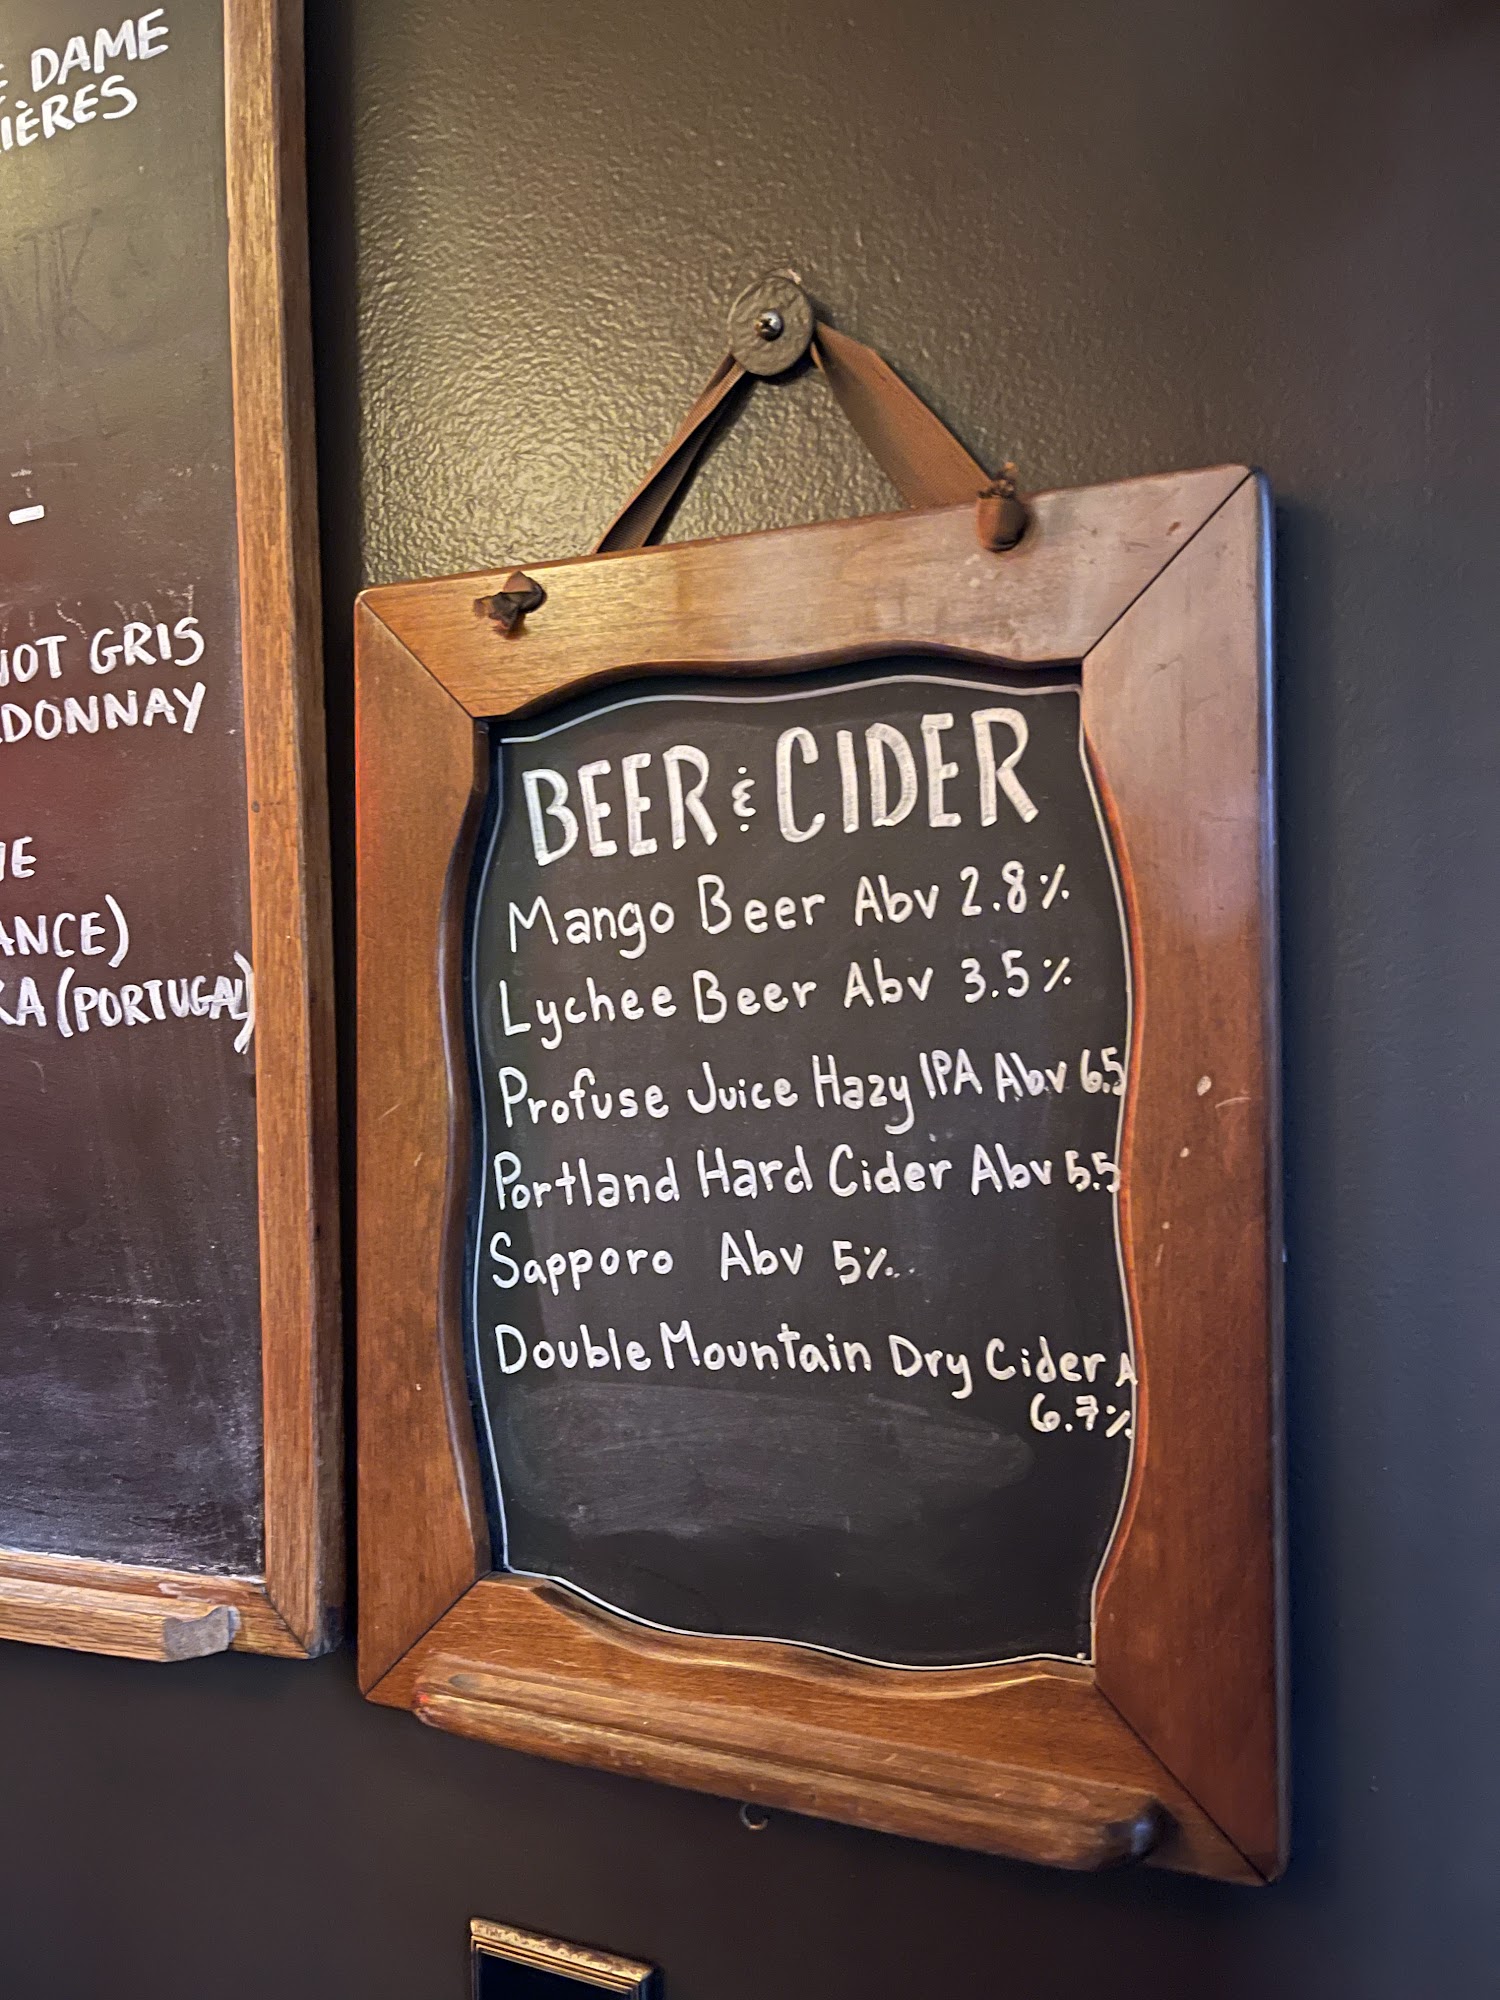 DAME
IÈRES
GRIS
DONNAY
ANCE)
(PORTUGAL)
BEER & CIDER
Mango Beer Abv 2.8%
Lychee Beer Abv 3.5%
Profuse Juice Hazy IPA Abv 6.5
Portland Hard Cider Abv 5.5
Sapporo Abv 5%
Double Mountain Dry Cider A
6.7%